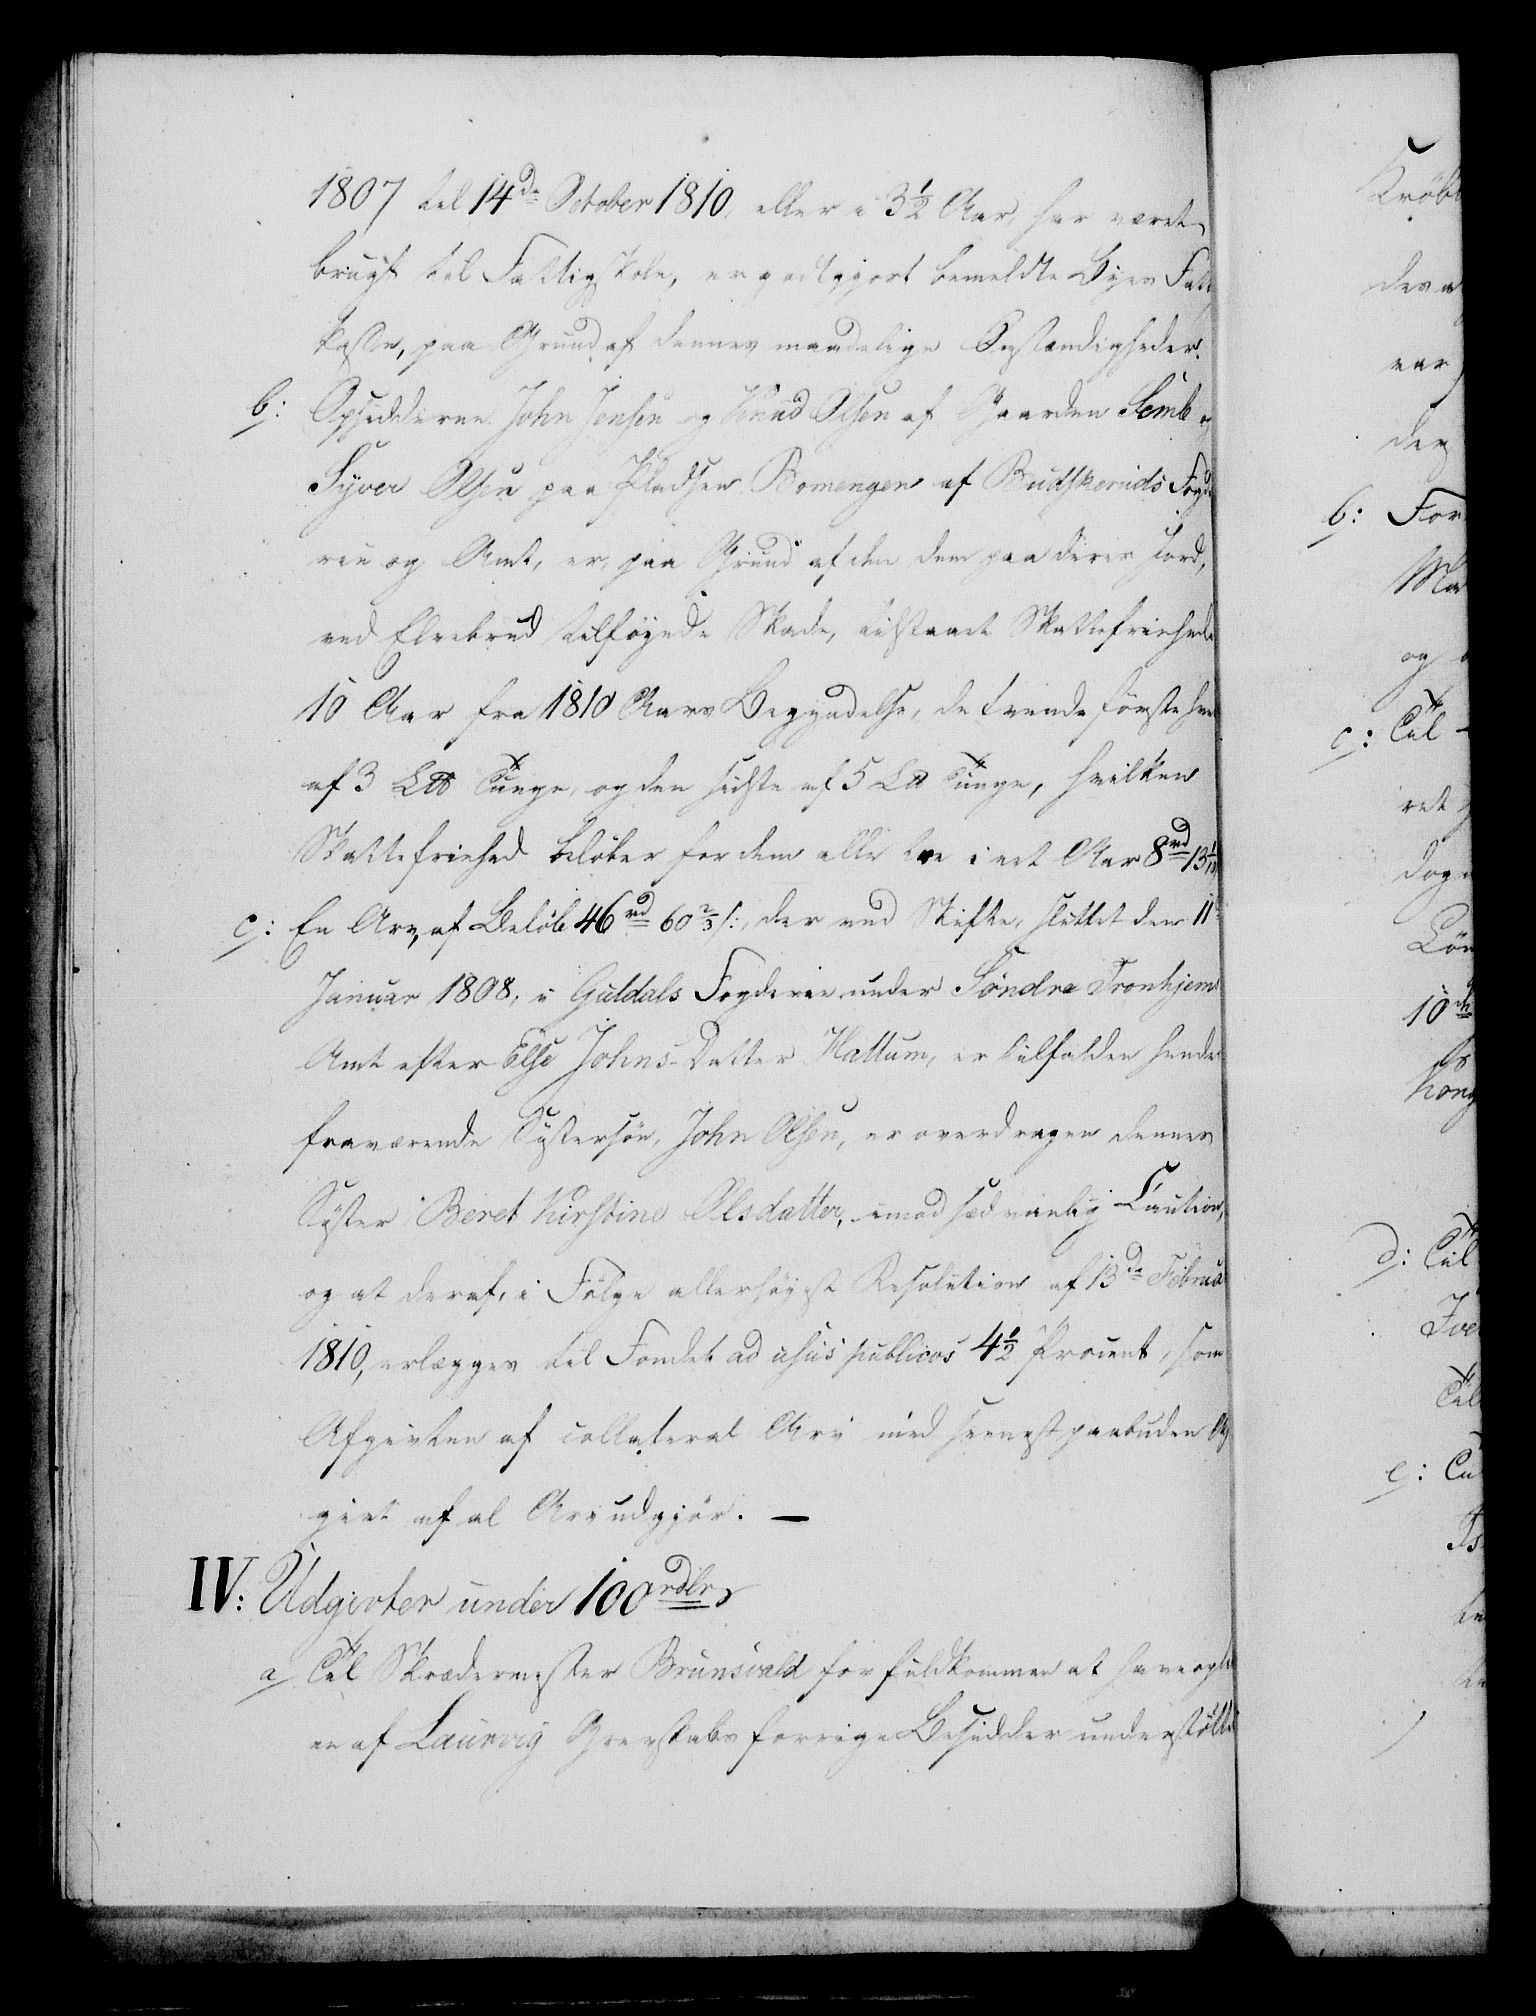 1807 til 14de October 1810, eller i 3½ Aar, har været
brugt til Fattigskole, er godtgjort bemeldte Byes Fatt
kasse, paa Grund af dennes maadelige Omstændigheder.
b: Opsidderne John Jensen og Knud Olsen af Gaarden Semb og
Syver Olsen paa Pladsen Bomengen af Budskeruds Fogde
rie og Amt, er, paa Grund af den dem paa deres Jord,
ved Elvebrud tilføyede Skade, tilstaaet Skattefriehed
10 Aar fra 1810 Aars Begyndelse, de tvende første hver
af 3 L℔ Tunge, og den sidste af 5 L℔ Tunge, hvilken
Skattefriehed beløber for dem alle tre i eet Aar 8rd 13½
c: En Arv, af Beløb 46rd 60⅔ s:, der ved Skifte, sluttet den 11
Januar 1808, i Guldals Fogderie under Søndre Tronhjems
Amt efter Else Johns-Datter Hallum, er tilfalden hendes
fraværende Søstersøn, John Olsen, er overdragen dennes
Søster Beret Kirstine Olsdatter, imod sædvanlig Caution,
og at deraf, i Følge allerhøyeste Resolution af 13de Februa
1810, erlægges til Fondet ad usus publicos 4½ Procent, som
Afgivten af collateral Arv med seenest paabuden Af
givt af al Arv udgjør. —
IV: Udgivter under 100rdlr
a Til Skrædermester Brunsvald for fuldkommen at have oplæ
en af Laurvig Grevskabs forrige Besidder understøtte
Krøb
des a
var
der
b: For
Ma
og
c: Til
ret
dog
Løn
10de
Kong
d: Til
Ive
Til
e: Til